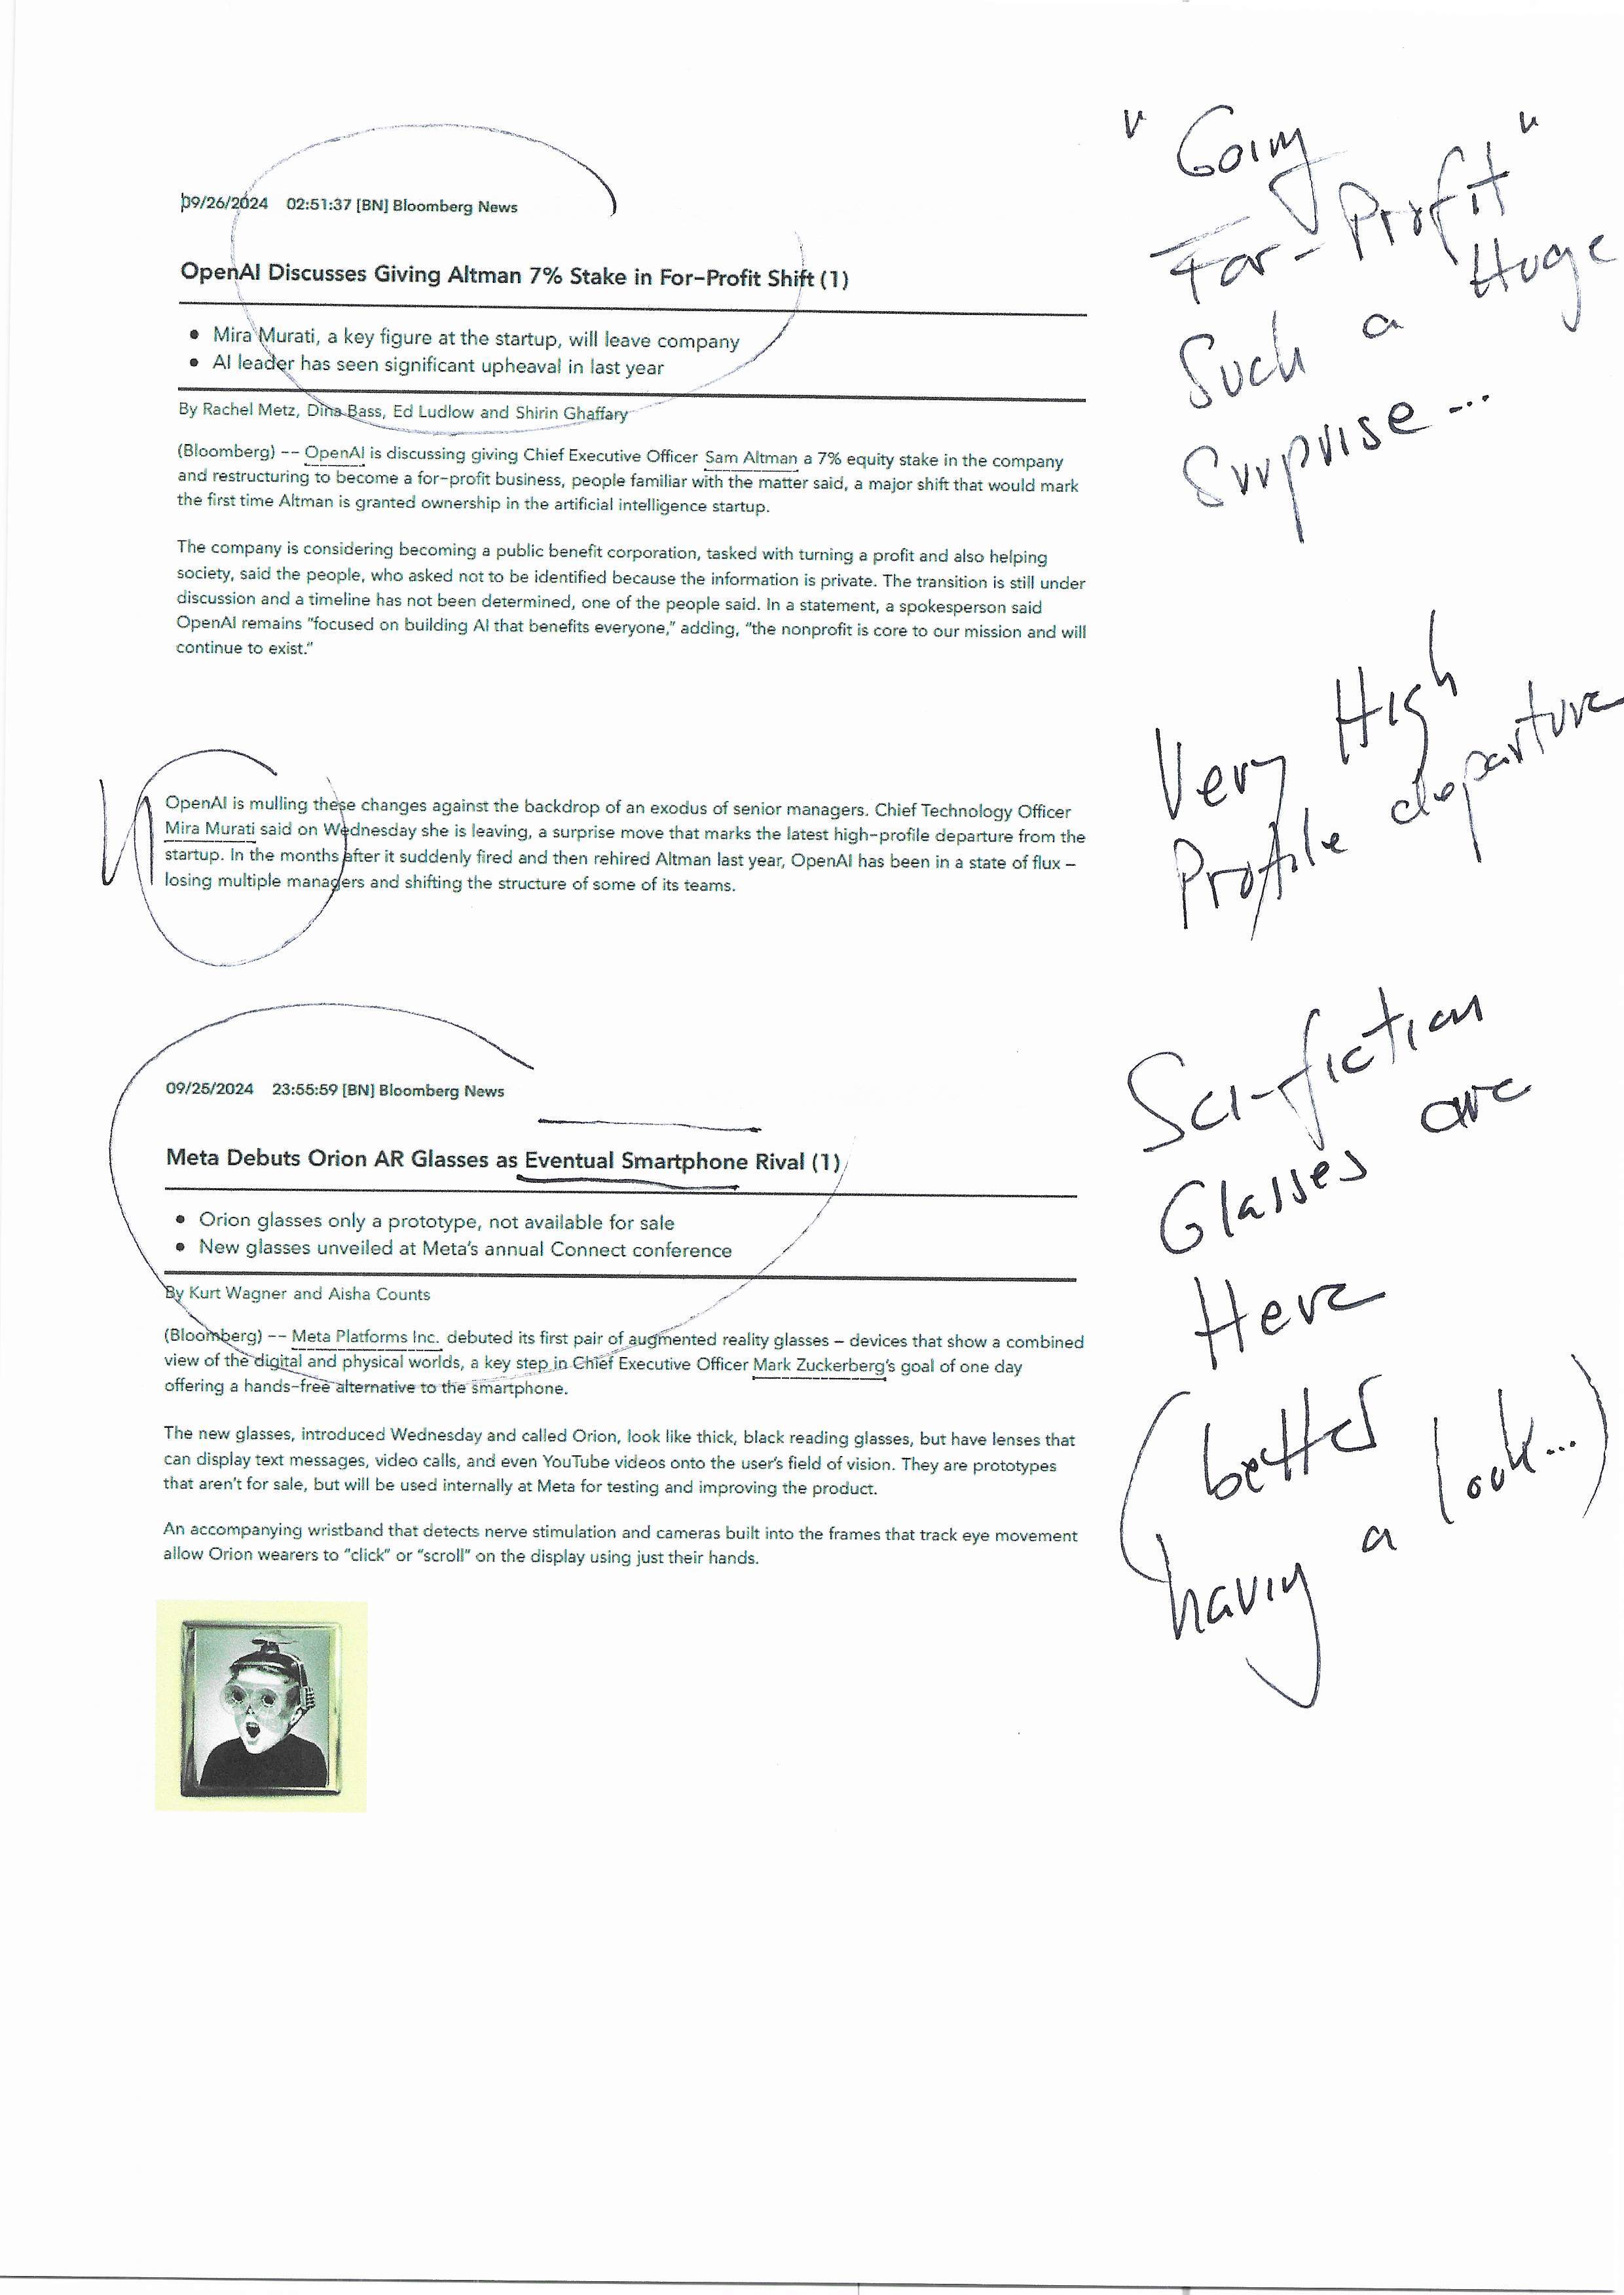 09/26/2024 02:51:37 [BN] Bloomberg News
OpenAI Discusses Giving Altman 7% Stake in For-Profit Shift (1)
• Mira Murati, a key figure at the startup, will leave company
• AI leader has seen significant upheaval in last year
By Rachel Metz, Dina Bass, Ed Ludlow and Shirin Ghaffary
(Bloomberg) -- OpenAI is discussing giving Chief Executive Officer Sam Altman a 7% equity stake in the company
and restructuring to become a for-profit business, people familiar with the matter said, a major shift that would mark
the first time Altman is granted ownership in the artificial intelligence startup.
The company is considering becoming a public benefit corporation, tasked with turning a profit and also helping
society, said the people, who asked not to be identified because the information is private. The transition is still under
discussion and a timeline has not been determined, one of the people said. In a statement, a spokesperson said
OpenAI remains "focused on building AI that benefits everyone," adding, "the nonprofit is core to our mission and will
continue to exist."
"Going
For-Profit"
Such a Huge
Surprise...
OpenAI is mulling these changes against the backdrop of an exodus of senior managers. Chief Technology Officer
Mira Murati said on Wednesday she is leaving, a surprise move that marks the latest high-profile departure from the
startup. In the months after it suddenly fired and then rehired Altman last year, OpenAI has been in a state of flux –
losing multiple managers and shifting the structure of some of its teams.
Very High
Profile departure
09/25/2024 23:55:59 [BN] Bloomberg News
Meta Debuts Orion AR Glasses as Eventual Smartphone Rival (1)
• Orion glasses only a prototype, not available for sale
• New glasses unveiled at Meta's annual Connect conference
By Kurt Wagner and Aisha Counts
(Bloomberg) -- Meta Platforms Inc. debuted its first pair of augmented reality glasses – devices that show a combined
view of the digital and physical worlds, a key step in Chief Executive Officer Mark Zuckerberg's goal of one day
offering a hands-free alternative to the smartphone.
The new glasses, introduced Wednesday and called Orion, look like thick, black reading glasses, but have lenses that
can display text messages, video calls, and even YouTube videos onto the user's field of vision. They are prototypes
that aren't for sale, but will be used internally at Meta for testing and improving the product.
An accompanying wristband that detects nerve stimulation and cameras built into the frames that track eye movement
allow Orion wearers to "click" or "scroll" on the display using just their hands.
Sci-fiction
Glasses are
Here
(better
having a look...)